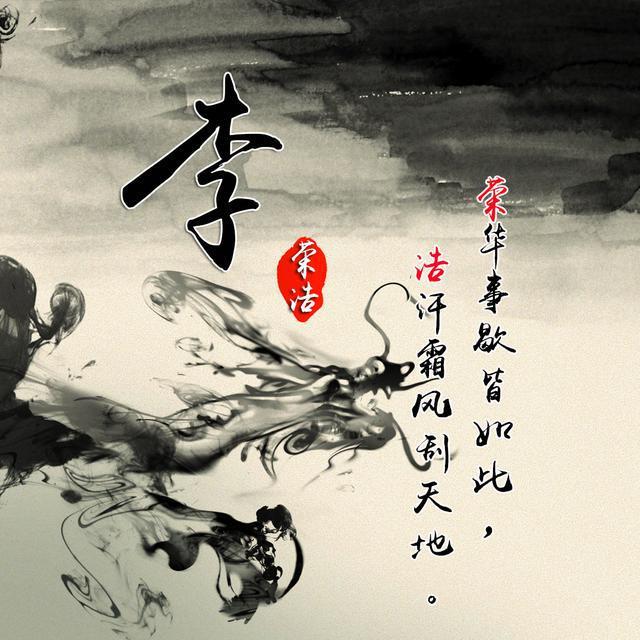 李
荣浩
荣华事歇皆如此，
浩汗霜风刮天地。